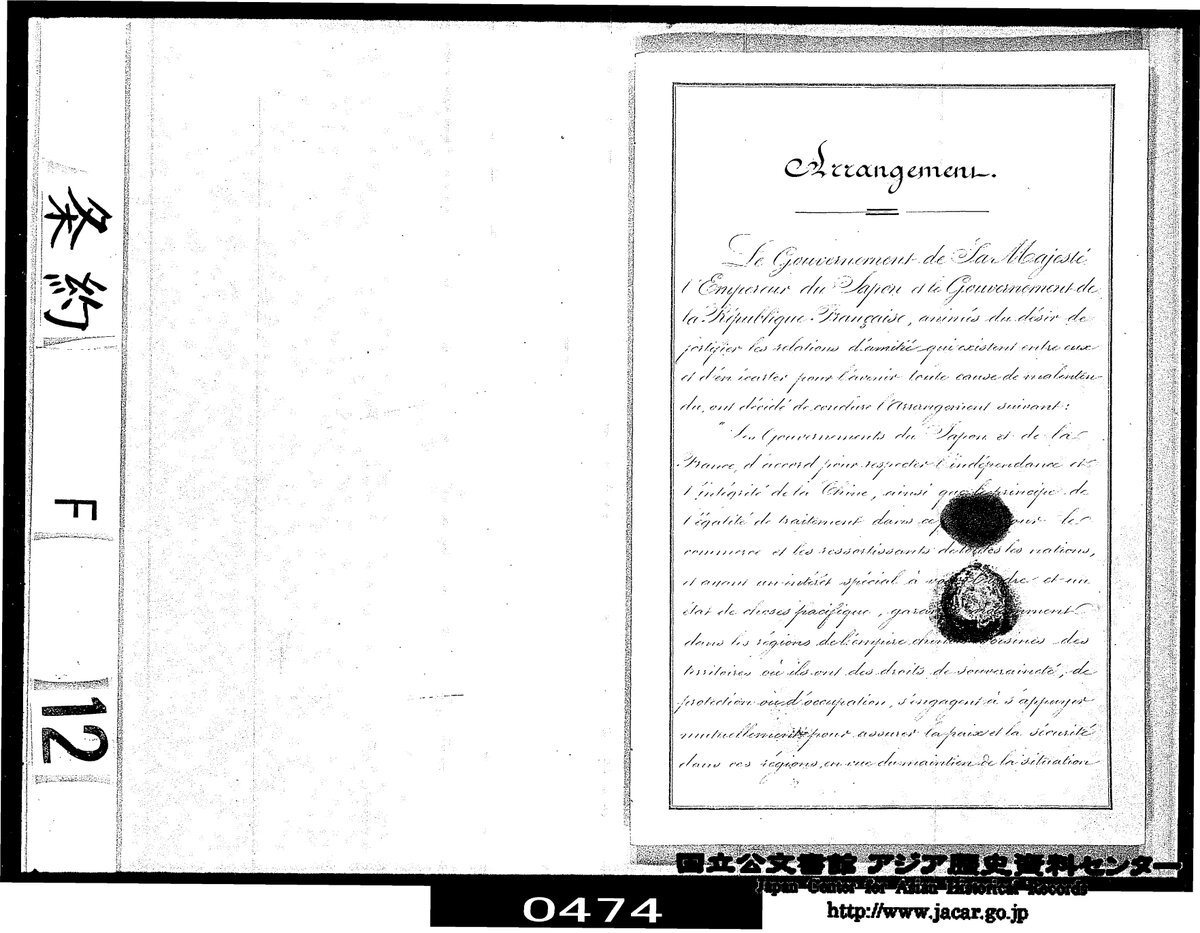 条約
F
12
Arrangement.
Le Gouvernement de Sa Majesté
l'Empereur du Japon et le Gouvernement de
la République Française, animés du désir de
fortifier les relations d'amitié qui existent entre eux
et d'en écarter pour l'avenir toute cause de malenten-
du, ont décidé de conclure l'Arrangement suivant:
"Les Gouvernements du Japon et de la
France, d'accord pour respecter l'indépendance et
l'intégrité de la Chine, ainsi que le principe de
l'égalité de traitement dans ce our le
commerce et les ressortissants de toutes les nations,
et ayant un intérêt spécial à dre et un
état de choses pacifique, garan ment
dans les régions de l'empire chin voisines des
territoires où ils ont des droits de souveraineté, de
protection ou d'occupation, s'engagent à s'appuyer
mutuellement pour assurer la paix et la sécurité
dans ces régions, en vue du maintien de la situation
国立公文書館 アジア歴史資料センター
Japan Center for Asian Historical Records
http://www.jacar.go.jp
0474